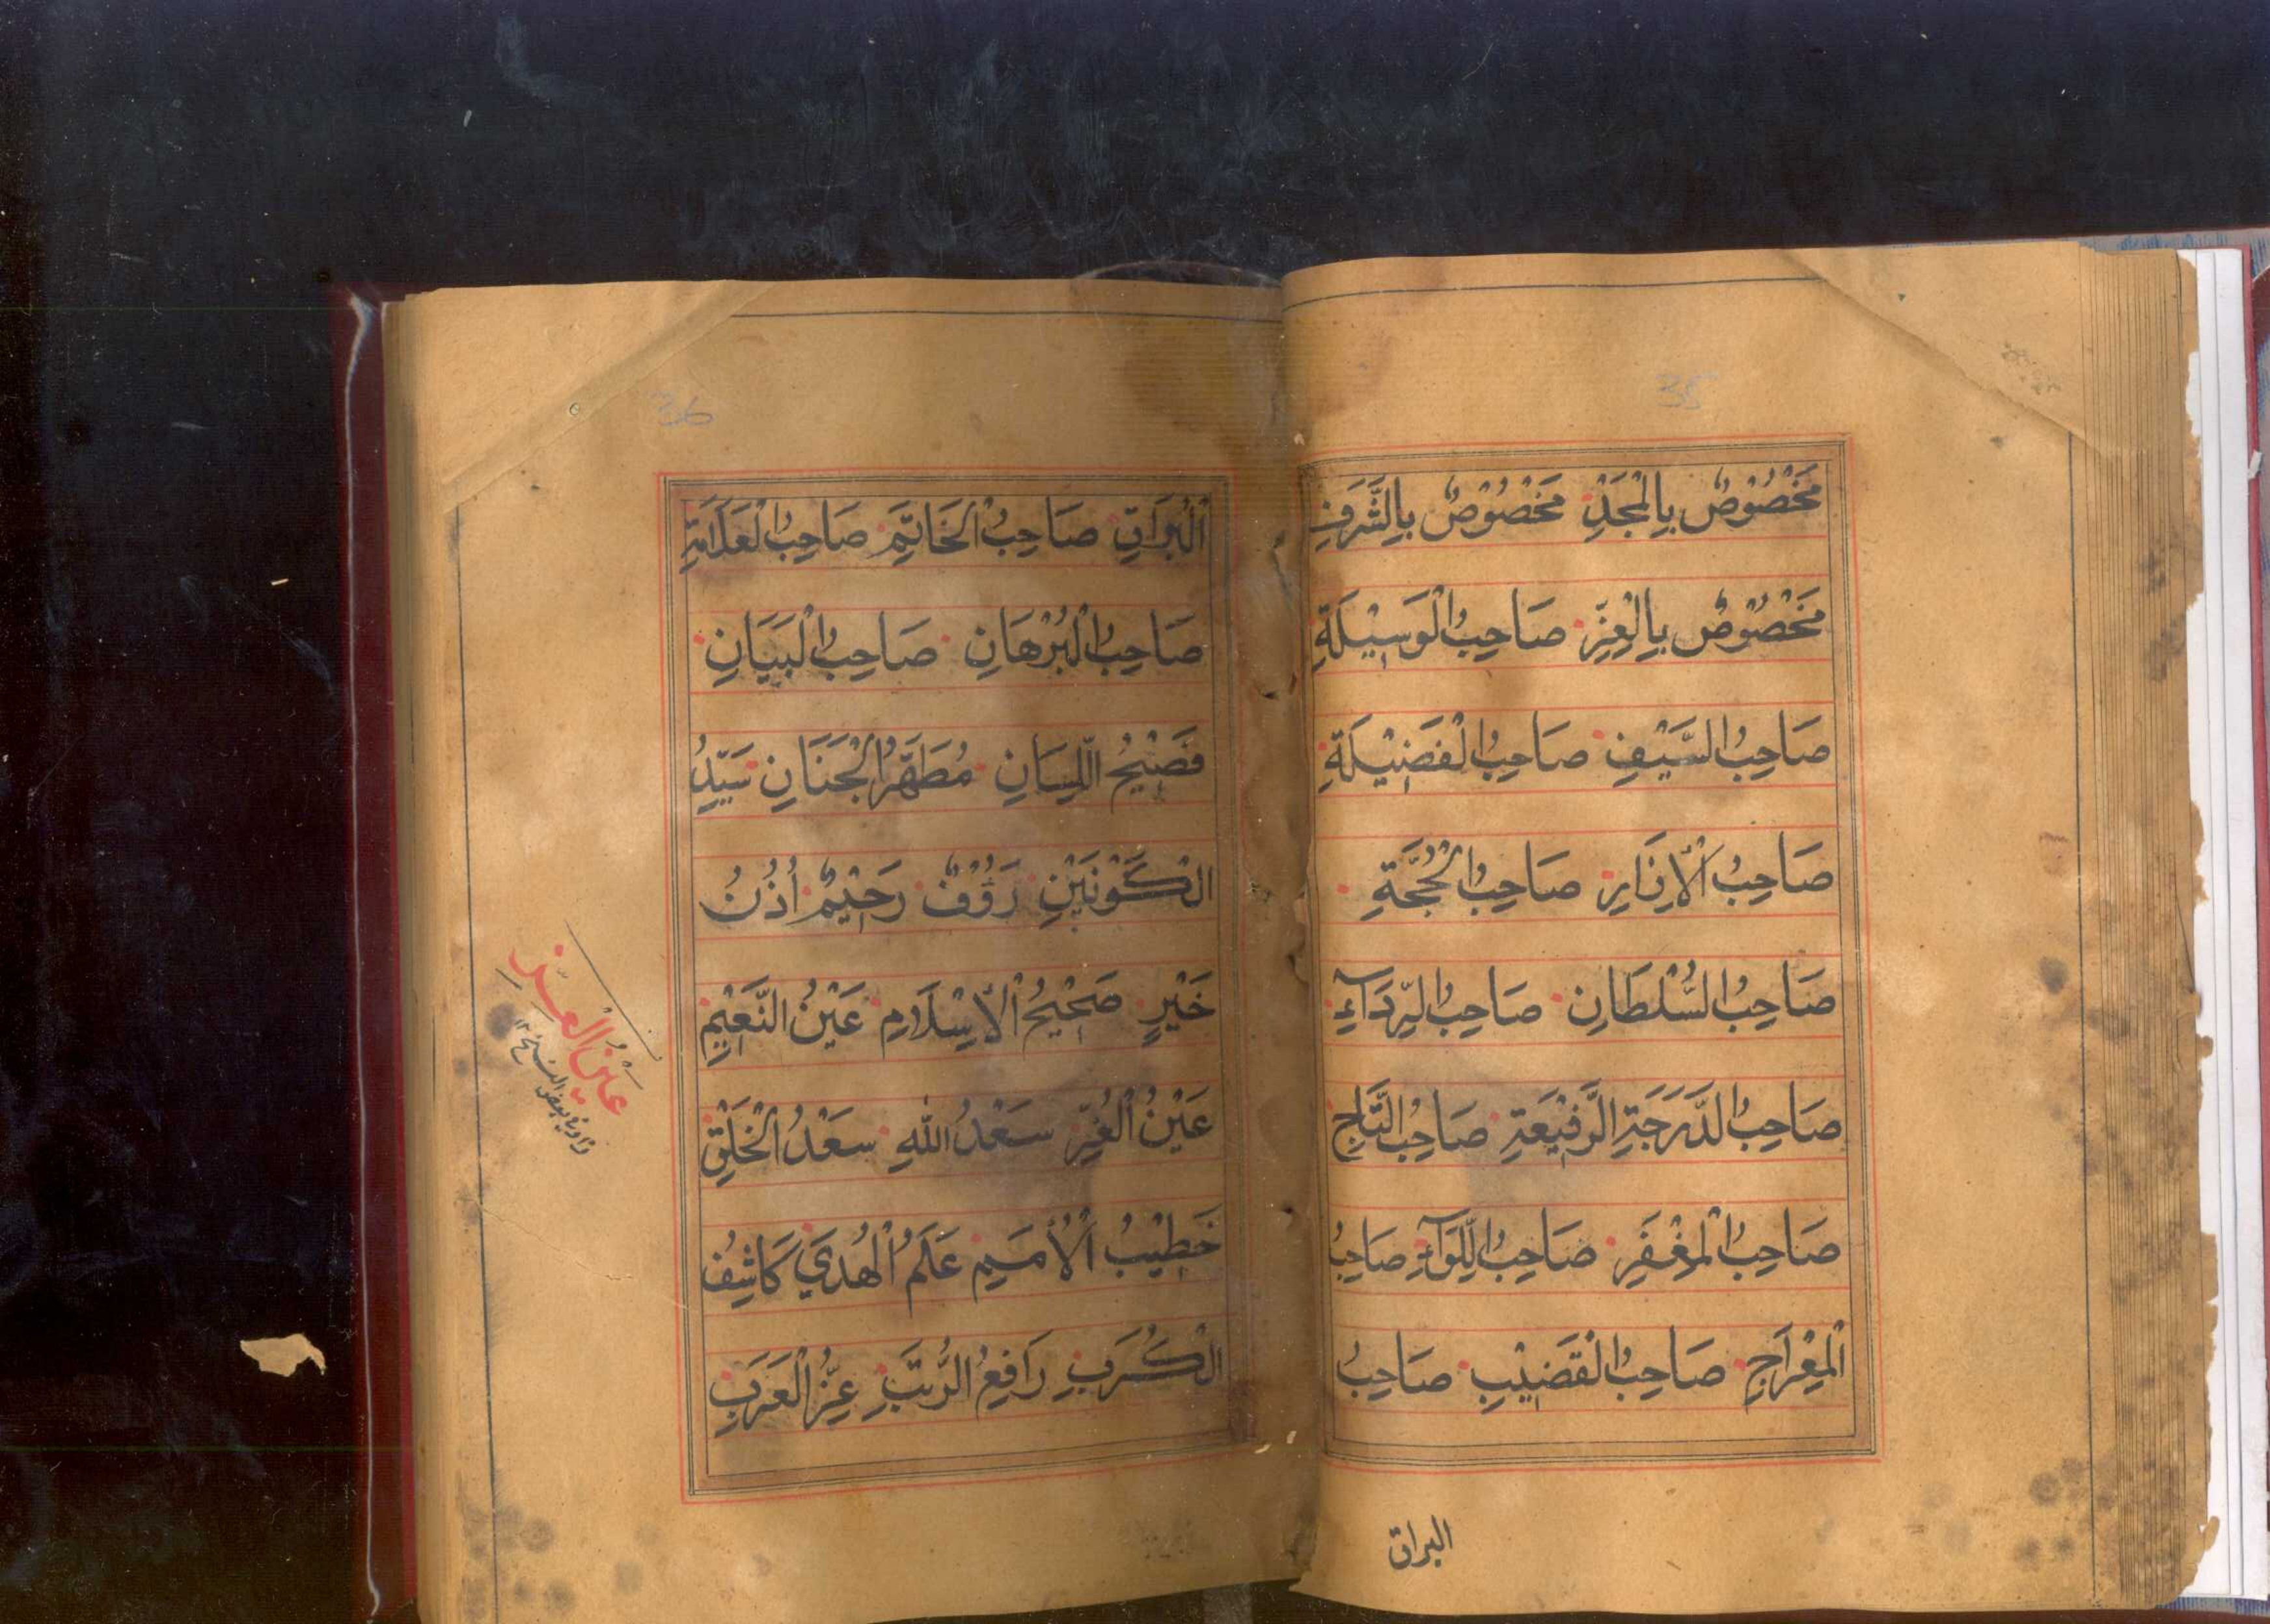 35
مَخْصُوْصٌ بِالْمَجْدِ مَخْصُوْصٌ بِالشَّرَفِ
مَخْصُوْصٌ بِالْعِزِّ صَاحِبُ الْوَسِيْلَةِ
صَاحِبُ السَّيْفِ صَاحِبُ الْفَضِيْلَةِ
صَاحِبُ الْاِزَارِ صَاحِبُ الْحُجَّةِ
صَاحِبُ السُّلْطَانِ صَاحِبُ الرِّدَآءِ
صَاحِبُ الدَّرَجَةِ الرَّفِيْعَةِ صَاحِبُ التَّاجِ
صَاحِبُ الْمِغْفَرِ صَاحِبُ اللِّوَآءِ صَاحِبُ
الْمِعْرَاجِ صَاحِبُ الْقَضِيْبِ صَاحِبُ
البراق
36
الْبُرَاقِ صَاحِبُ الْخَاتَمِ صَاحِبُ الْعَلَامَةِ
صَاحِبُ الْبُرْهَانِ صَاحِبُ الْبَيَانِ
فَصِيْحُ اللِّسَانِ مُطَهَّرُ الْجَنَانِ سَيِّدُ
الْكَوْنَيْنِ رَؤُفٌ رَحِيْمٌ اُذُنُ
خَيْرٍ صَحِيْحُ الْاِسْلَامِ عَيْنُ النَّعِيْمِ
عَيْنُ الْغُرِّ سَعْدُ اللهِ سَعْدُ الْخَلْقِ
خَطِيْبُ الْاُمَمِ عَلَمُ الْهُدَي كَاشِفُ
الْكُرَبِ رَافِعُ الرُّتَبِ عِزُّ الْعَرَبِ
عَيْنُ الْعِزِّ
بعض النسخ ١٢